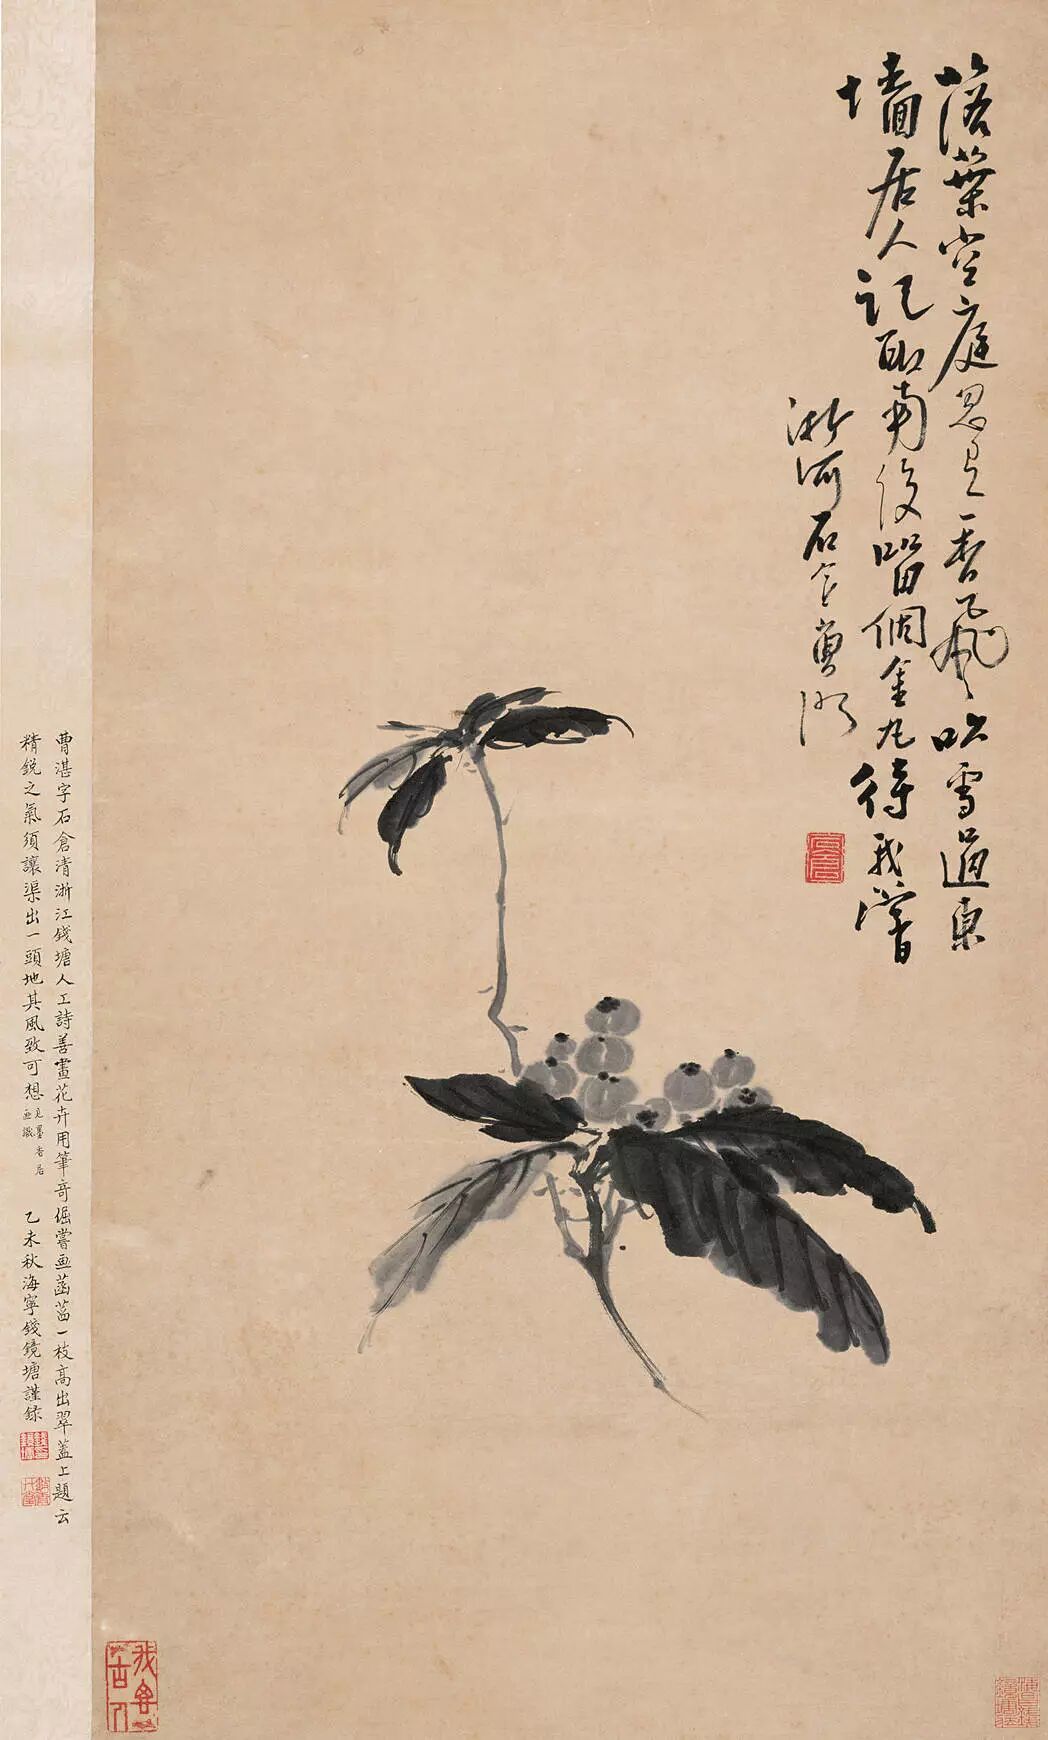 落葉空庭思是香飛吹雪過東
墻居人記取南後留個金丸待我嘗
浙河石倉曹湛
曹湛字石倉清浙江錢塘人工詩善畫花卉用筆奇倔嘗画菡萏一枝高出翠蓋上題云
精銳之氣須讓渠出一頭地其風致可想見墨香居画識 乙未秋海寧錢鏡塘謹錄